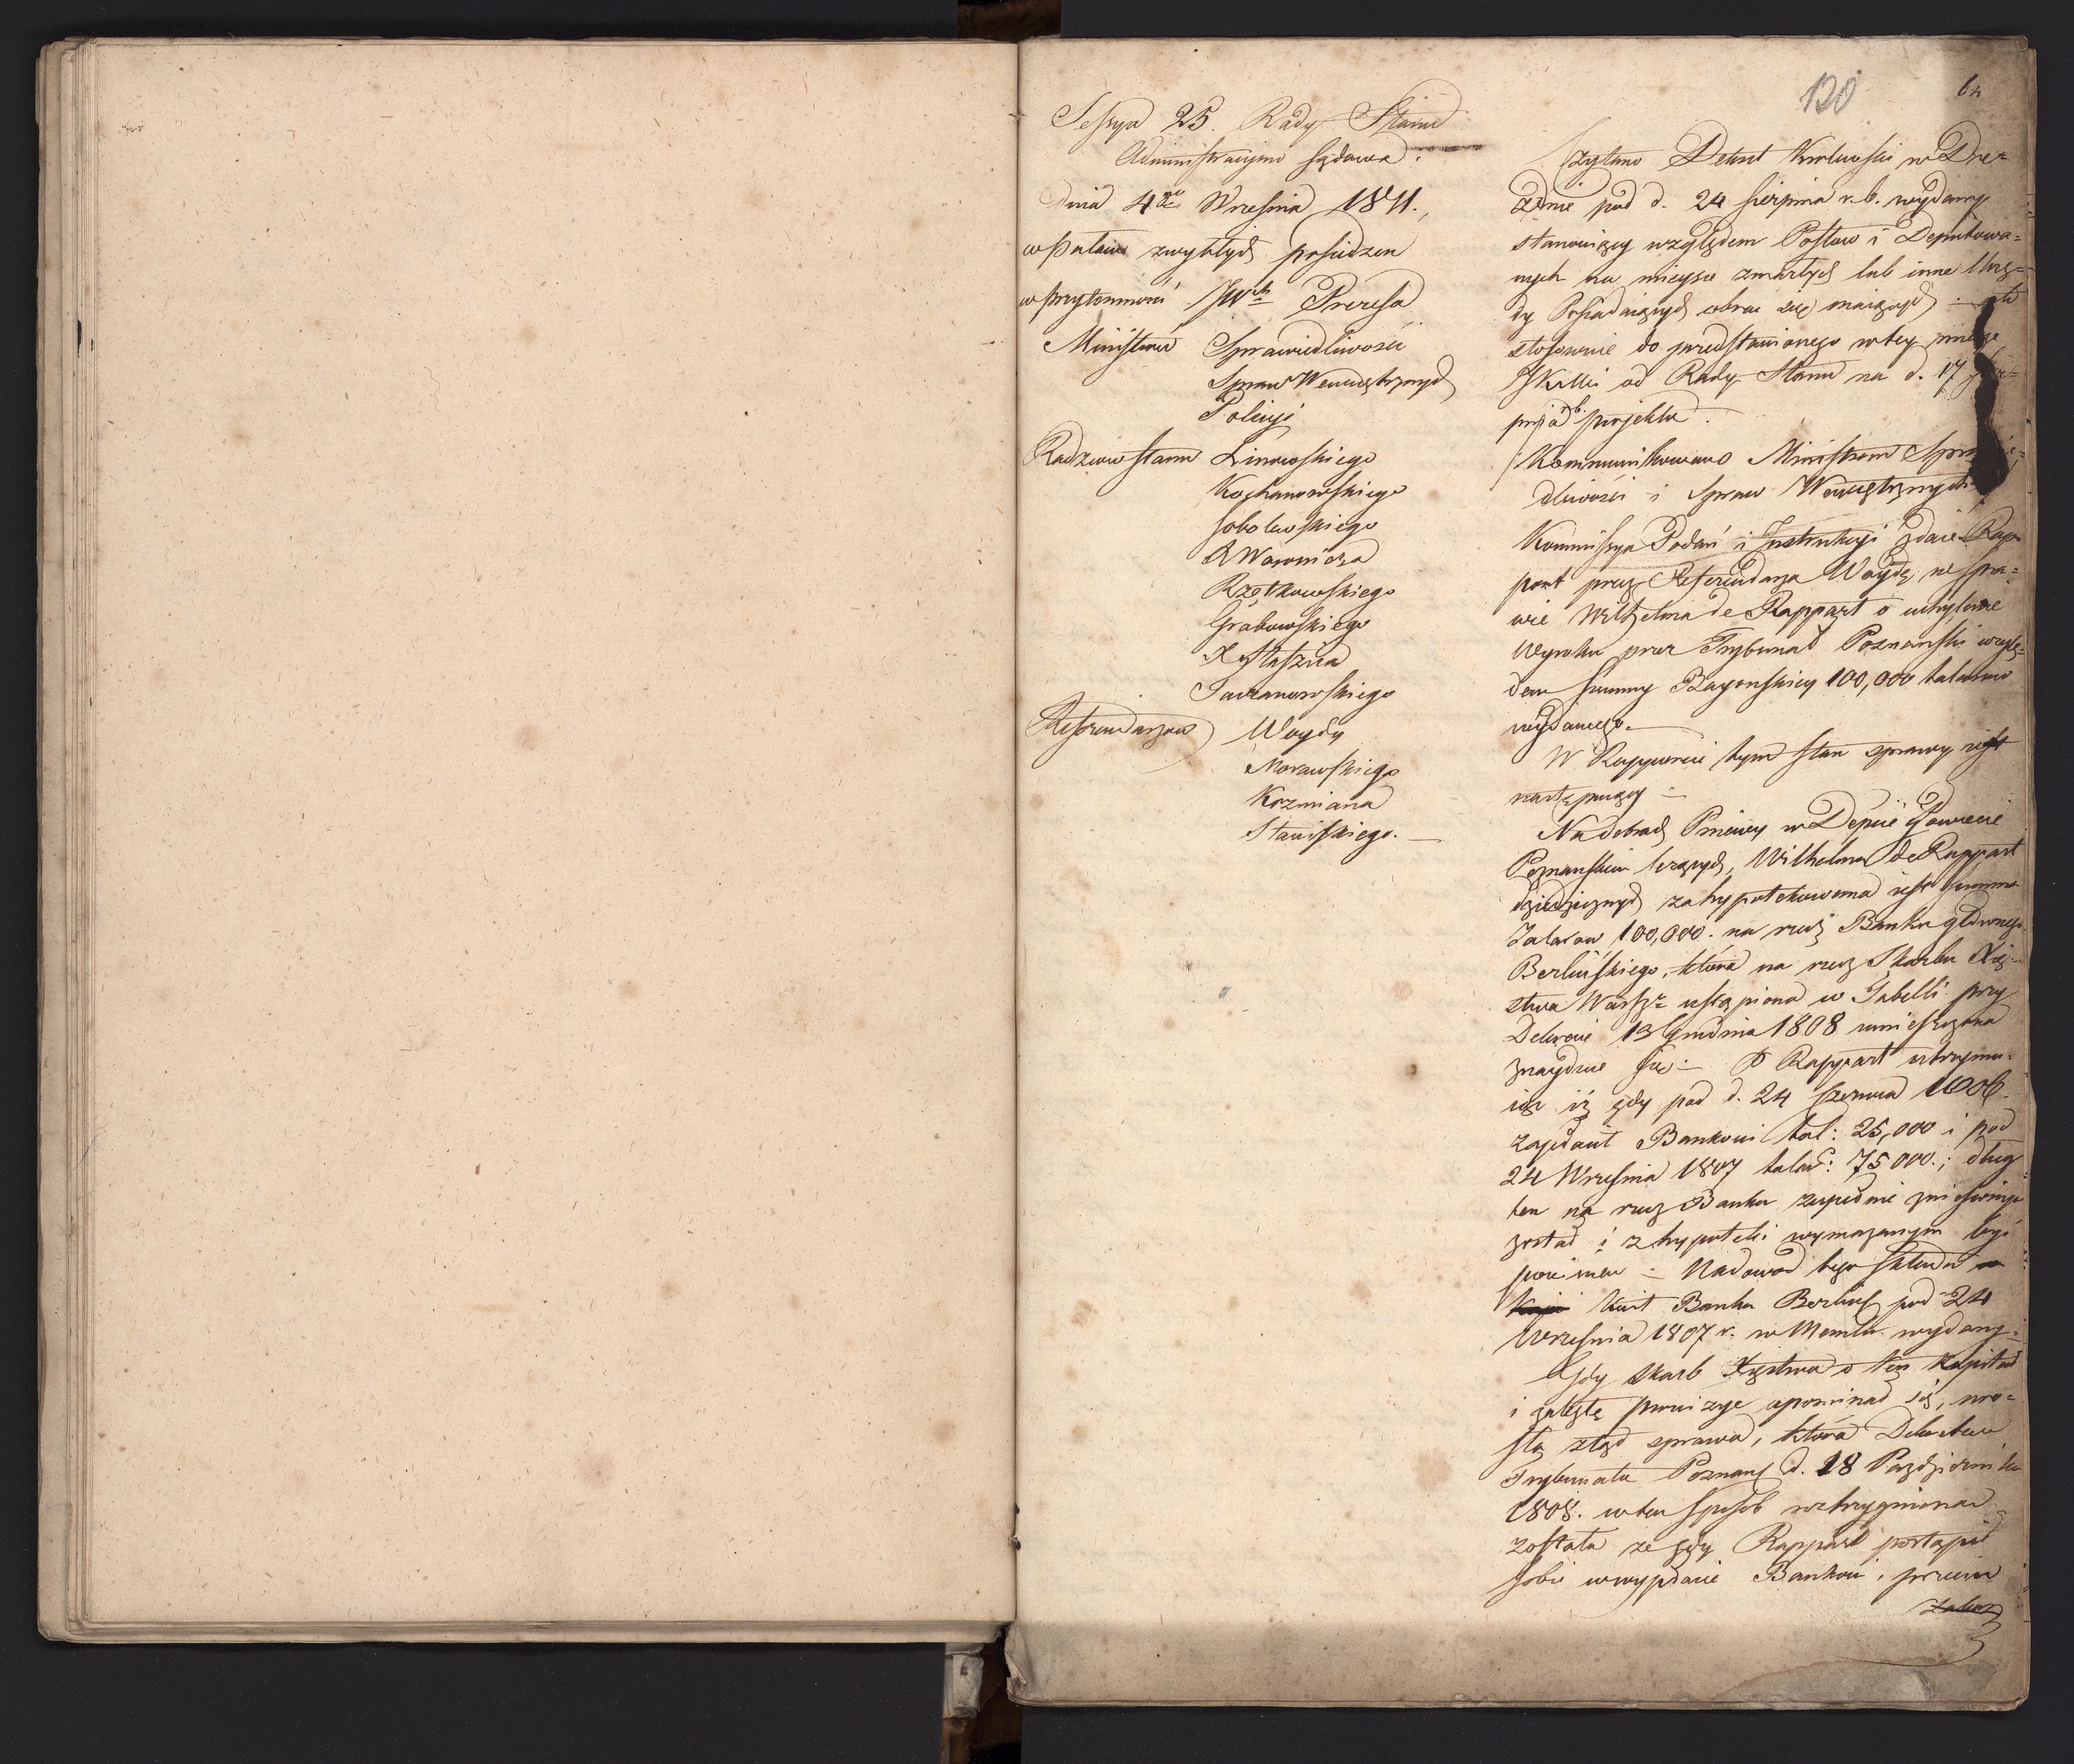 120
64
Sessya 25. Rady Stanu
Administracyjno sądowa.
dnia 4go Wrzesnia 1811.
w Pałacu zwykłych posiedzen
w przytomności JWch Prezesa
Ministrów Sprawiedliwości
Spraw Wewnętrznych
Policyi
Radzców Stanu Linowskiego
Kochanowskiego
Sobolewskiego
A Woronicza
Grabowskiego
X Staszica
Referendarzow Woydy
Morawskiego
Kozmiana
Czytano Dekret Krolewski w Drez=
dnie pod d. 24 sierpnia r. b. wydany
stanowiący względem Posłow i Deputowa=
nych na mieysce zmarłych lub inne Urzę=
dy Posiadaiących obrac się maiących
stosownie do przedstawionego w tey mierze
JKMci od Rady Stanu na d. 17
r b. projektu.
Kommunikowano Ministrom Spra
dliwości i Spraw Wewnętrznych
Kommissya Podań i Instrukcyi zdaie Rap
port przez Referendarza Woydę w spra=
wie Wilhelma de Rappart o uchylenie
Wyroku przez Trybunał Poznanski wzglę=
dem summy Bayonskiey 100,000 talarow
wydanego.
W Rapporcie tym stan sprawy iest
następuiący
Na dobrach Pniewy w Depcie i Powiecie
Poznanskim leżących, Wilhelma de Rappart
dziedzicznych zahypotekowana iest summa
Talarow 100,000. na rzecz Banku głównego
Berlińskiego, która na rzecz Skarbu Xię=
stwa Warszo ustąpiona w Tabelli przy
Dekrecie 13 Grudnia 1808 umieszczona
znayduie się P Rappart utrzymu=
iąc iż gdy pod d. 24 Czerwca 1806.
zapłacił Bankowi tal: 25,000 i pod
24 Wrzesnia 1807 talar: 75000.; dług
ten na rzecz Banku zupełnie zniesionym
został i z hypoteki wymazanym być
powinien Na dowod tego składa
kwit Banku Berlins pod 24
Wrzesnia 1807 r. w Memlu wydany.
Gdy skarb Xięstwa o ten kapitał
i zaległe prowizye upominał się, wro=
sła ztąd sprawa, która Dekretem
Trybunału Poznans d. 28 Pazdziernika
1808. w ten sposob roztrzygniona
została ze gdy Rappart postąpił
sobie w wypłacie Bankowi, przeciw